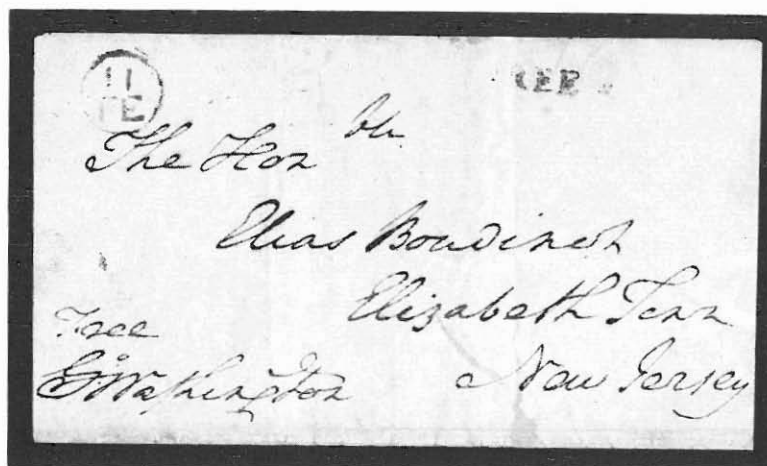 11
FE
The Honble
Elias Boudinot
Elizabeth Town
Free
New Jersey
G:Washington